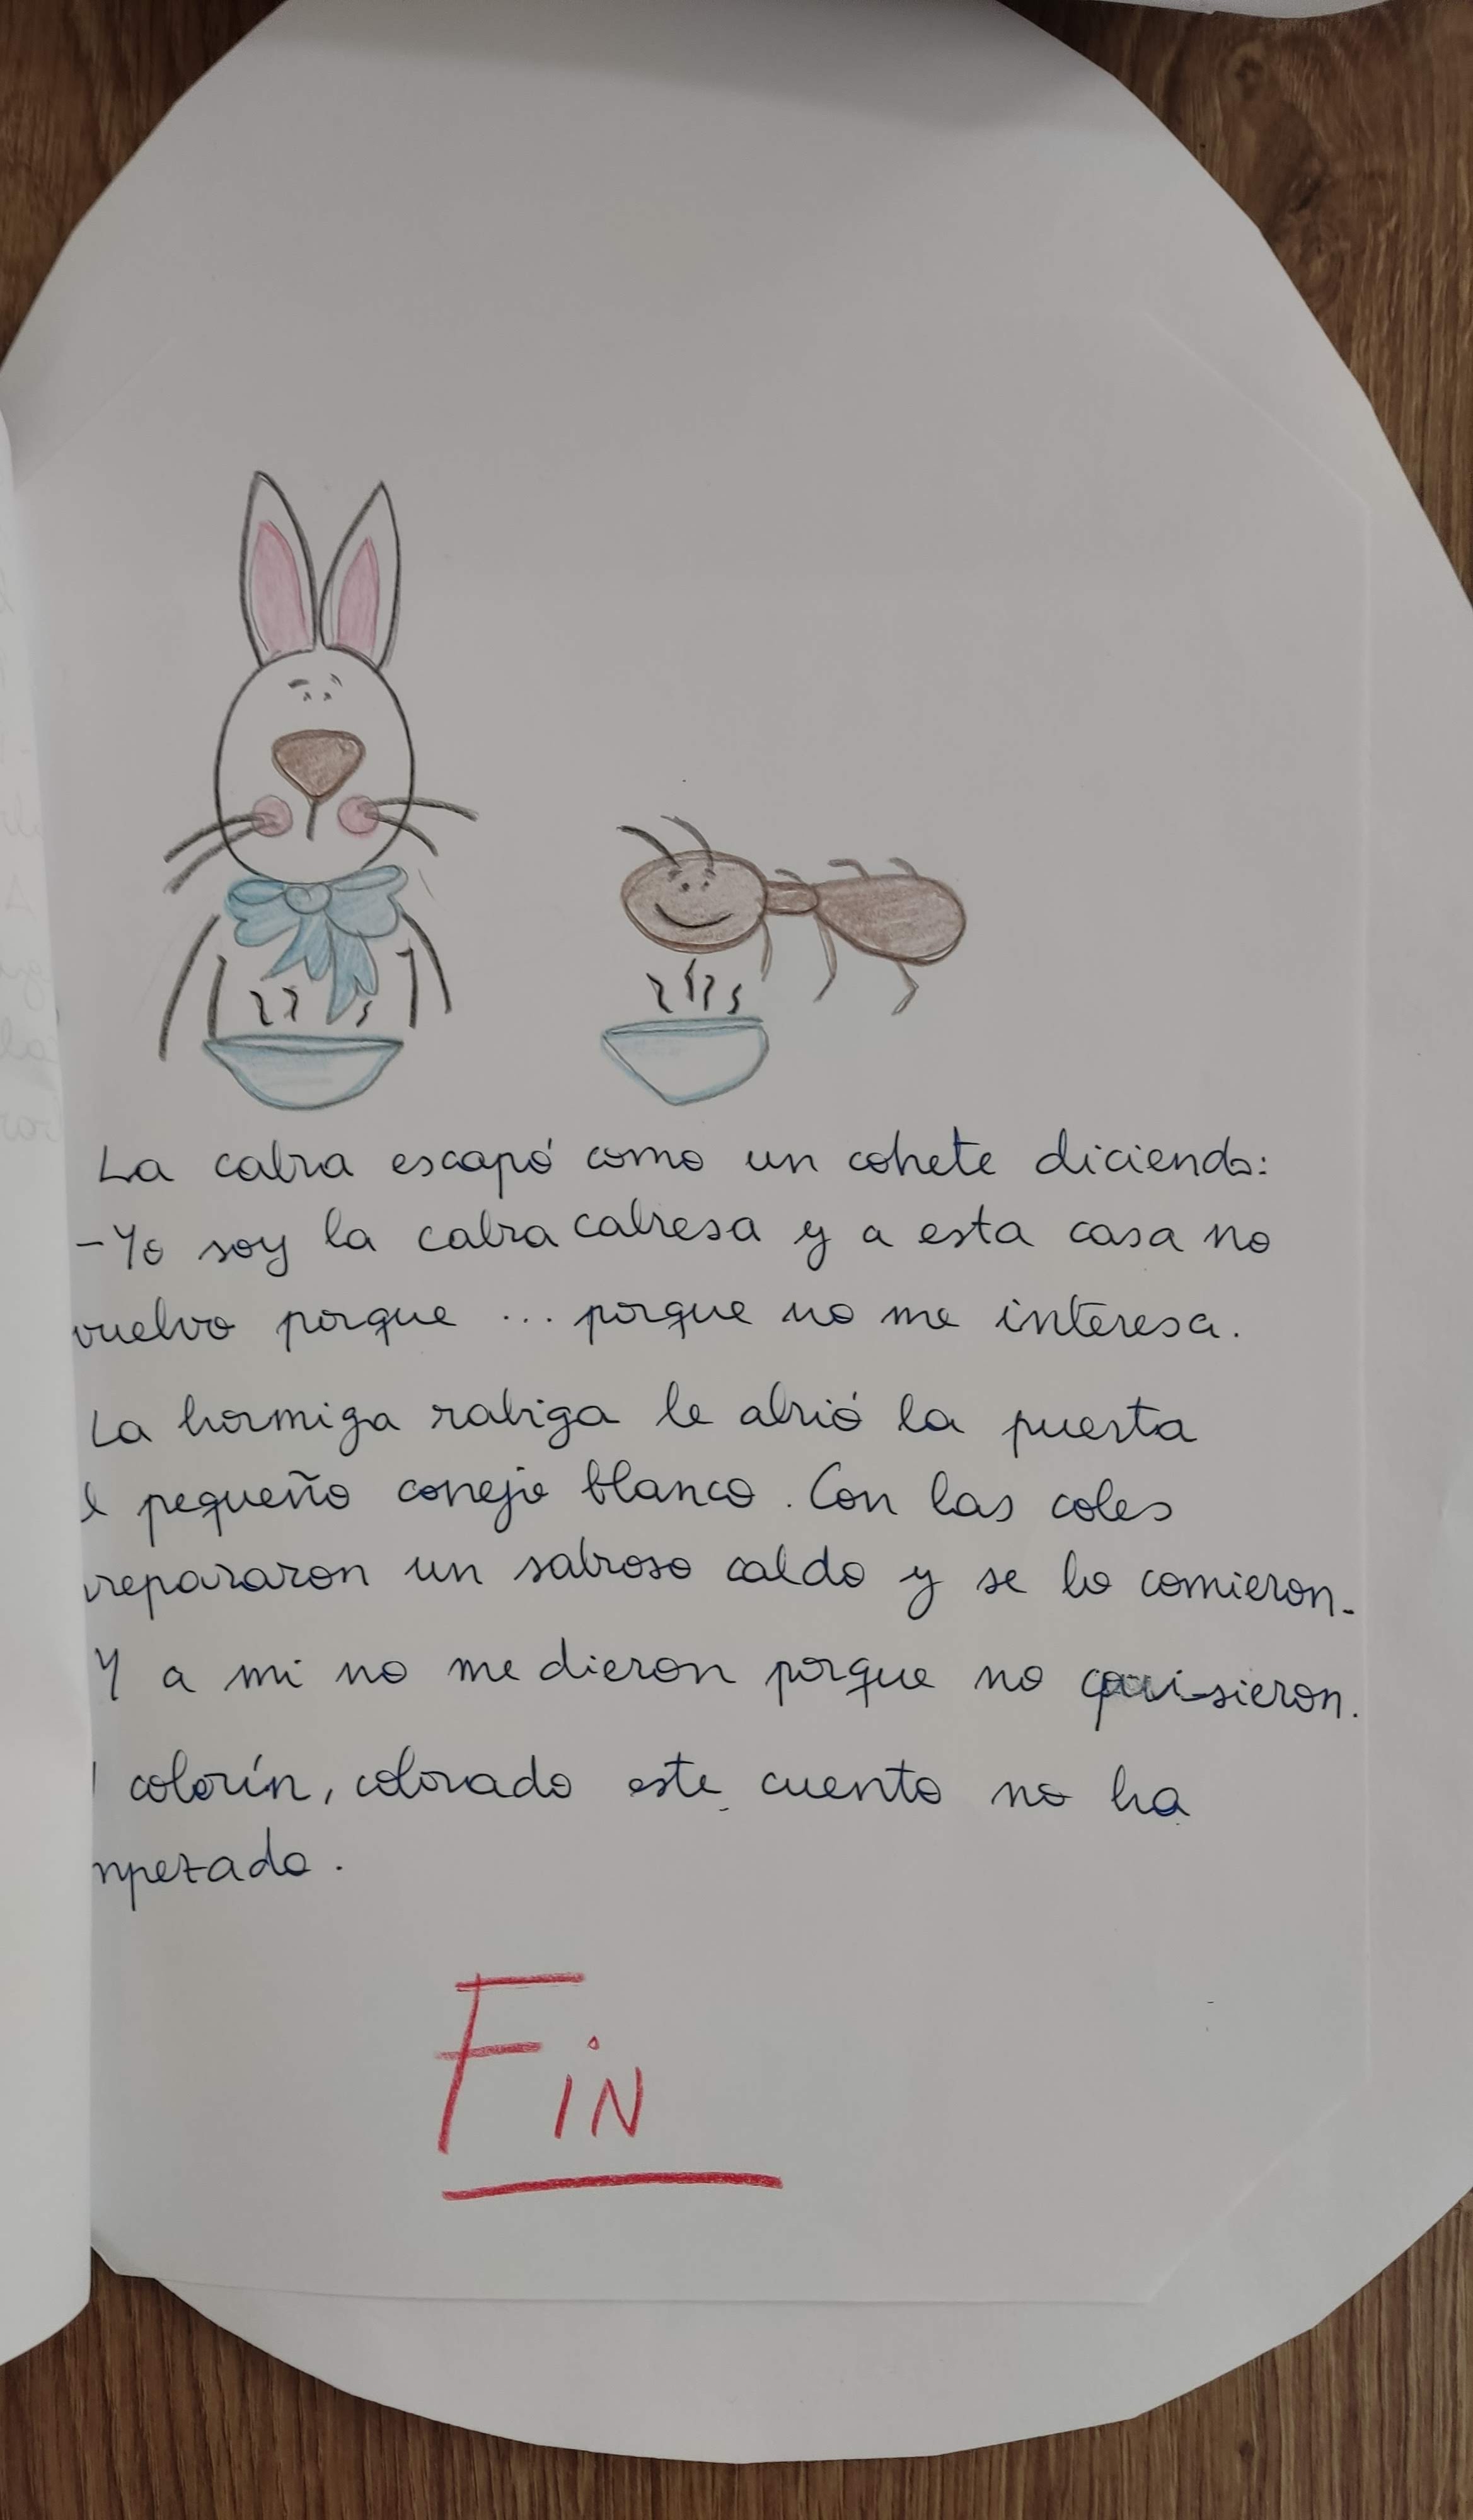 La cabra escapó como un cohete diciendo:
-Yo soy la cabra cabresa y a esta casa no
vuelvo porque ... porque no me interesa.
La hormiga rabiga le abrió la puerta
l pequeño conejo blanco. Con las coles
repararon un sabroso caldo y se lo comieron.
Y a mi no me dieron porque no quisieron.
colorín, colorado este cuento no ha
mpezado.
FiN